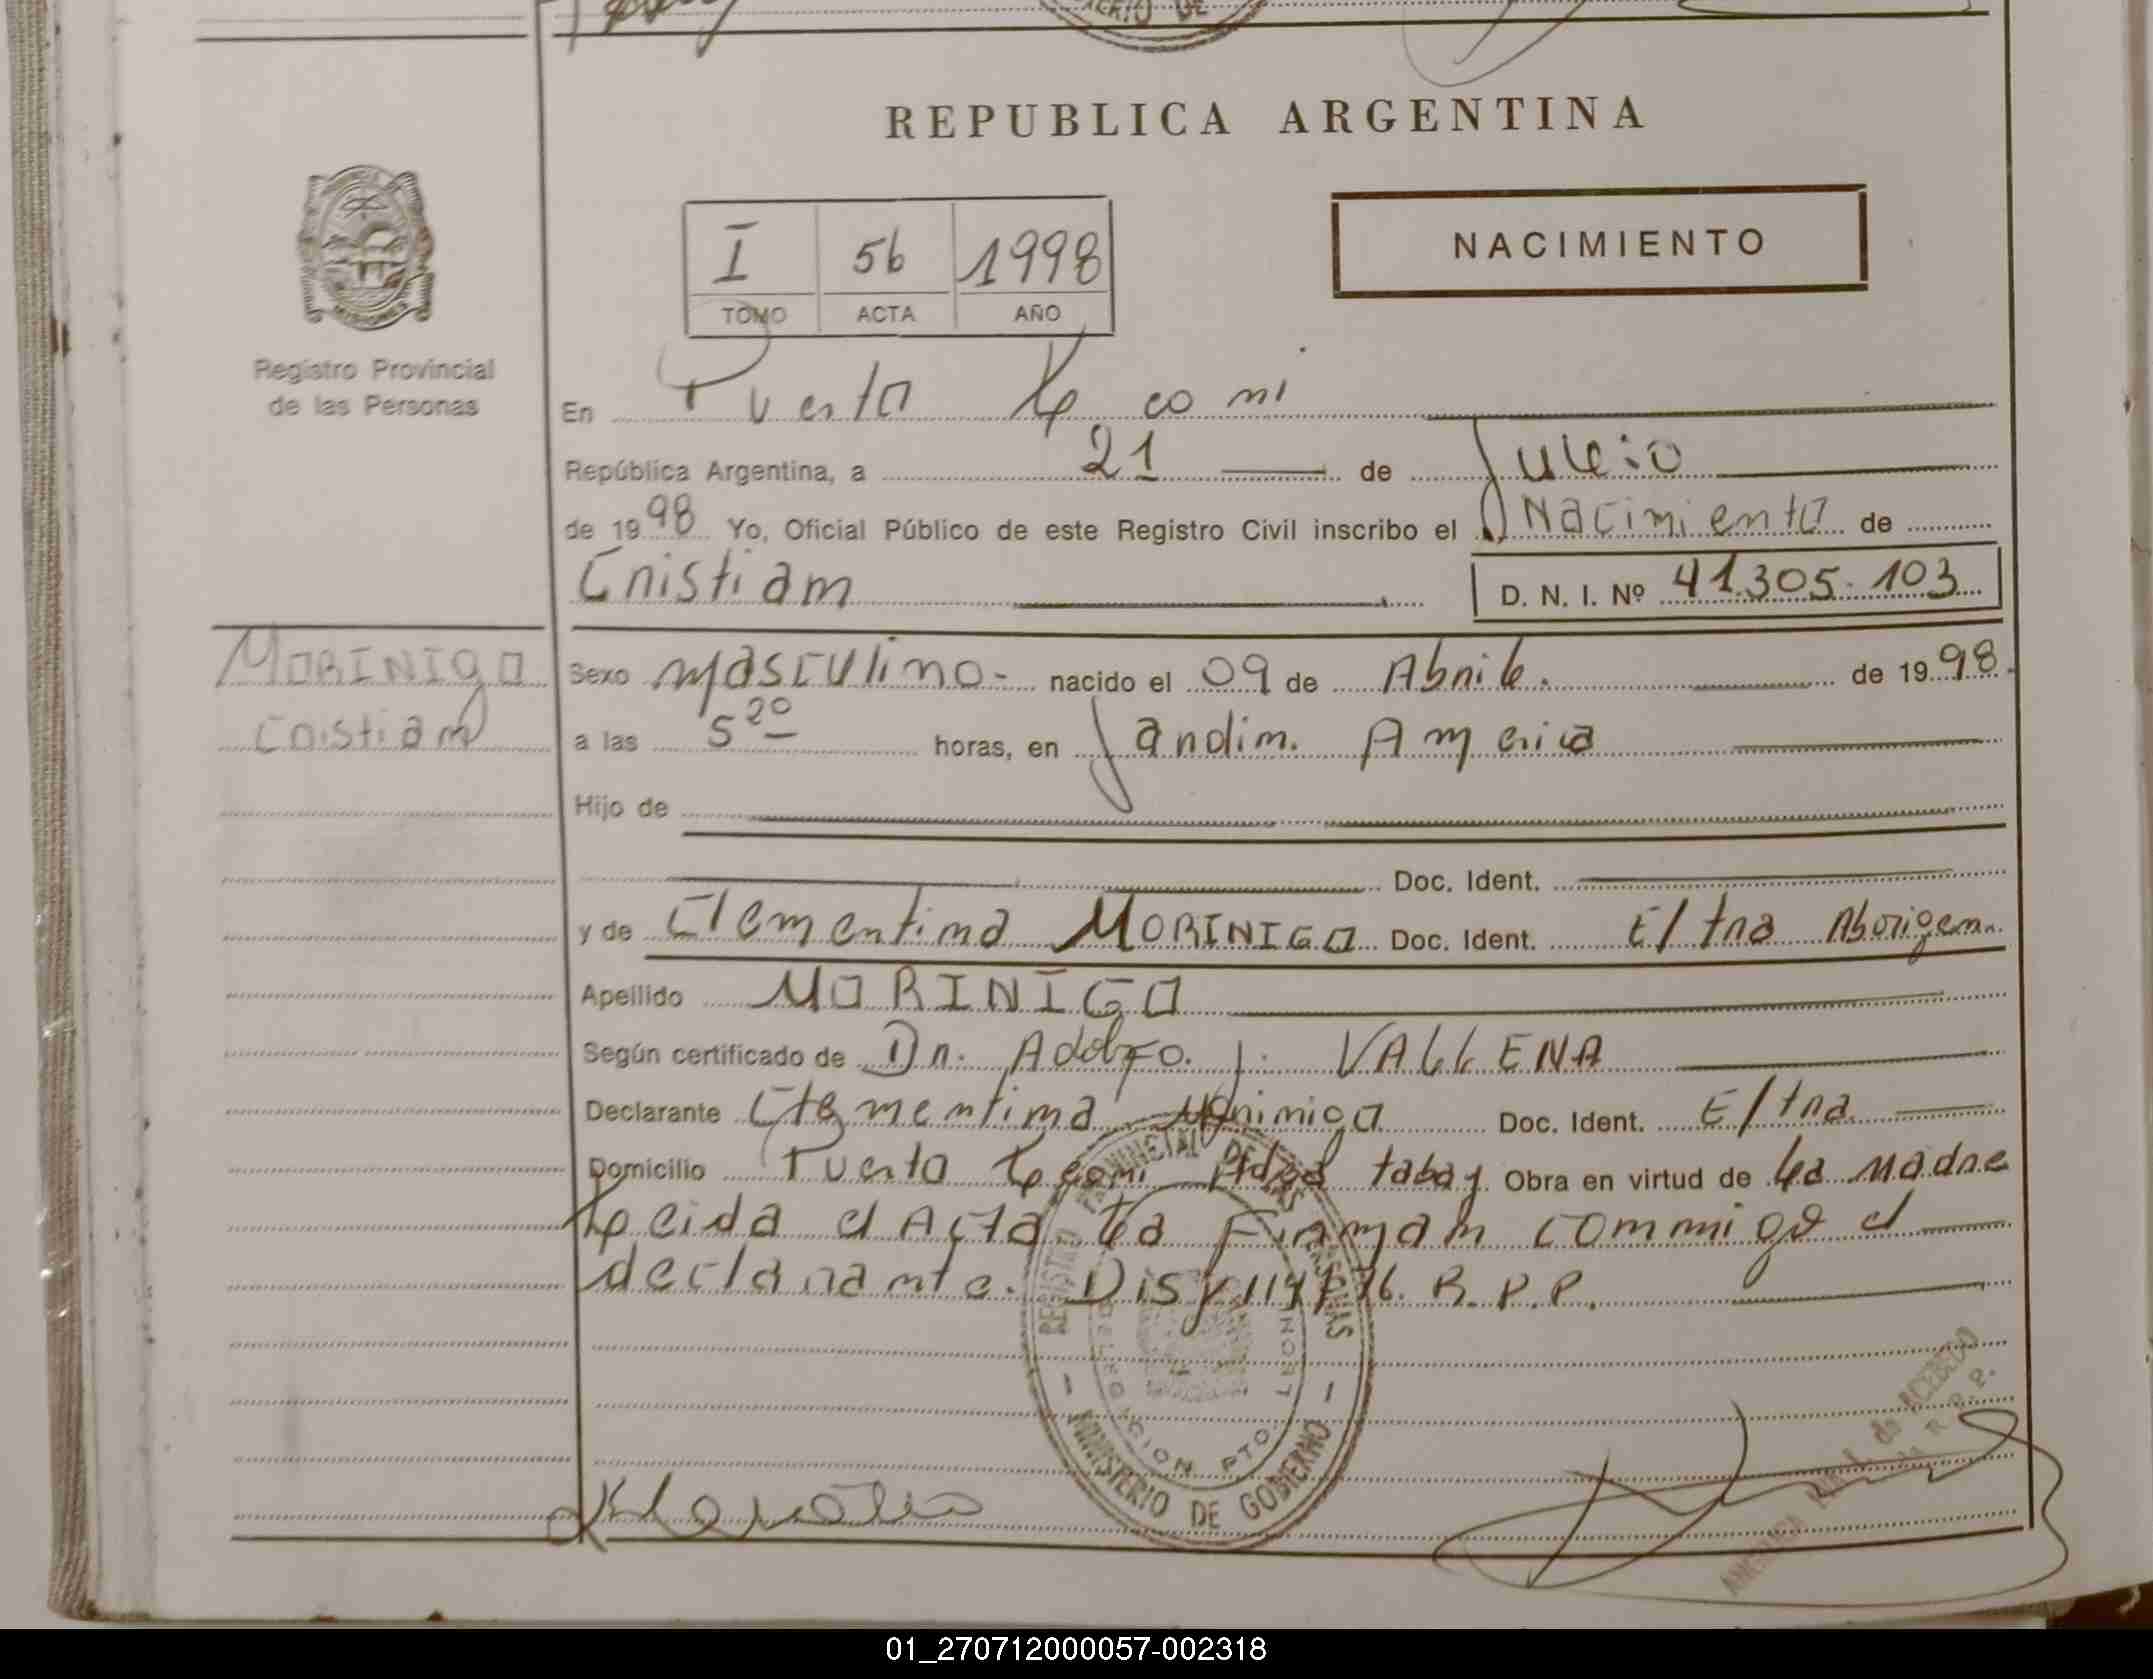 REPUBLICA ARGENTINA
NACIMIENTO
I 56 1998
TOMO ACTA AÑO
Registro Provincial
de las Personas
En Puerto Leoni
República Argentina, a 21 de Julio
de 1998 Yo, Oficial Público de este Registro Civil inscribo el Nacimiento de
Cristian
D. N. I. Nº 41.305.103
MORINIGO
Cristian
Sexo Masculino.- nacido el 09 de Abril. de 1998.
a las 5 20 horas, en Jardin America
Hijo de
Doc. Ident.
y de Clementina MORINIGO Doc. Ident. E/tra Aborigen.
Apellido MORINIGO
Según certificado de Dr. Adolfo. J. VALLENA
Declarante Clementina Morinigo Doc. Ident. E/tra.
Domicilio Puerto Leoni Aldea tabay Obra en virtud de La Madre
Leida el Acta La Firman conmigo el
declarante. Disp 114/76. R.P.P.
REGISTRO PROVINCIAL DE LAS PERSONAS
DELEGACION PTO. LEONI
MINISTERIO DE GOBIERNO
de ACEBEDO
R. P. P.
01_270712000057-002318